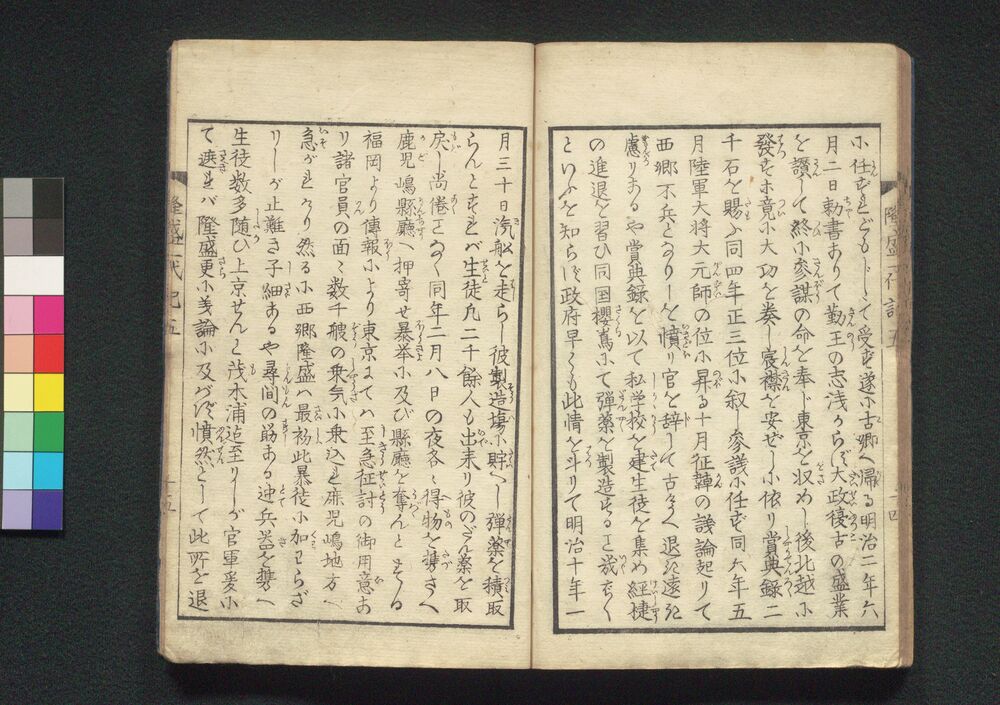 小任ぜれどもしゐて受ず遂小古郷へ帰る明治二年六
月二日勅書ありて勤王の志浅からず大政復古の盛業
を讃して終小参謀の命を奉じ東京を収めし後北越小
發す小竟小大功を奏し宸襟を安ぜし小依り賞典録二
千石を賜ふ同四年正三位小叙し参議小任ず同六年五
月陸軍大将大元師の位小昇る十月征韓の議論起りて
西郷不兵となりしを憤り官を辞して古郷へ退き遠き
慮りあるや賞典録を以て私学校を建生徒を集め経捷
の進退を習ひ同国櫻嶌小て弾薬を製造する
といふを知らず政府早くも此情を斗りて明治十年一
隆盛一代記五
十四
月三十日汽船を走らし彼製造場小貯へし弾薬を積取
らんとすれバ生徒凡二千餘人も出来り彼のだん薬を取
戻し尚倦なく同年二月八日の夜各〻得物を携さへ
鹿児嶋縣廳へ押寄せ暴挙小及び縣廳を奪んとする
福岡より傳報小より東京にてハ至急征討の御用意あ
り諸官員の面〻数千艘の乗気小乗込ミ鹿児嶋地方へ
急がれけり然る小西郷隆盛ハ最初此暴徒小加わらざ
りしが止難き子細あるや尋間の筋ある迚兵器を携へ
生徒数多随ひ上京せんと浅木浦迄至りしが官軍爰小
て遮れバ隆盛更小議論小及バず憤然として此所を退
隆盛一代記五
十五